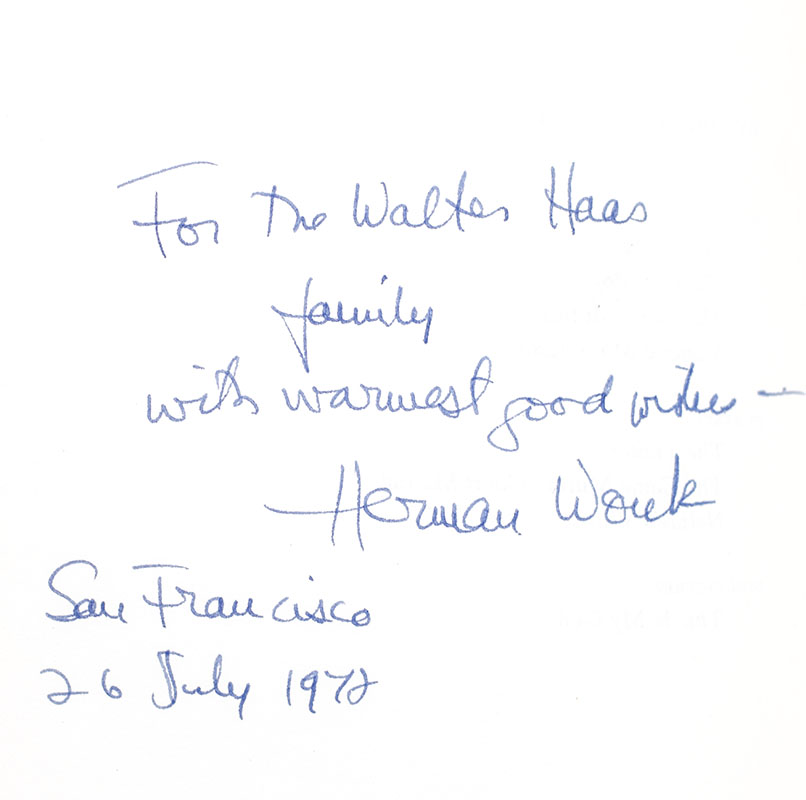 For the Walter Haas
family
with warmest good wishes —
Herman Wouk
San Francisco
26 July 1972